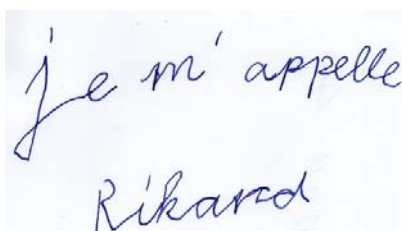 je m' appelle
Rikard